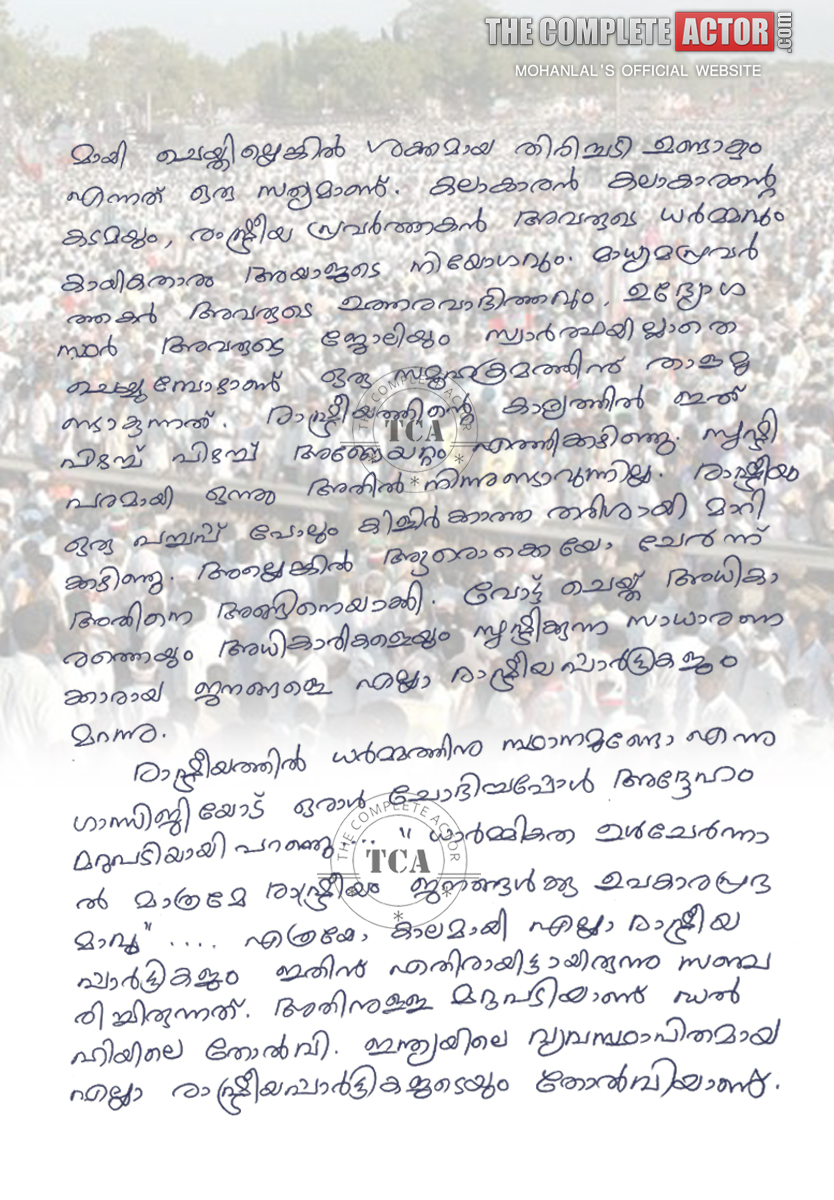 THE COMPLETE ACTOR.com
MOHANLAL'S OFFICIAL WEBSITE
മായി ചെയ്തില്ലെങ്കിൽ ശക്തമായ തിരിച്ചടി ഉണ്ടാകും
എന്നത് ഒരു സത്യമാണ്. കലാകാരൻ കലാകാരന്റെ
കടമയും, രാഷ്ട്രീയ പ്രവർത്തകൻ അവരുടെ ധർമ്മവും
കായികതാരം അയാളുടെ നിയോഗവും. മാധ്യമപ്രവർ
ത്തകർ അവരുടെ ഉത്തരവാദിത്തവും, ഉദ്യോഗ
സ്ഥർ അവരുടെ ജോലിയും സ്വാർത്ഥയില്ലാതെ
ചെയ്യുമ്പോഴാണ് ഒരു സമൂഹക്രമത്തിന് താളമു
ണ്ടാകുന്നത്. രാഷ്ട്രീയത്തിന്റെ കാര്യത്തിൽ ഇത്
പിഴച്ച് പിഴച്ച് അങ്ങേയറ്റം എത്തിക്കഴിഞ്ഞു. സൃഷ്ടി
പരമായി ഒന്നും അതിൽ നിന്നുണ്ടാവുന്നില്ല. രാഷ്ട്രീയം
ഒരു പച്ചപ്പ് പോലും കിളിർക്കാത്ത തരിശായി മാറി
ക്കഴിഞ്ഞു. അല്ലെങ്കിൽ ആരൊക്കെയോ ചേർന്ന്
അതിനെ അങ്ങിനെയാക്കി. വോട്ട് ചെയ്ത് അധികാ
രത്തെയും അധികാരികളെയും സൃഷ്ടിക്കുന്ന സാധാരണ
ക്കാരായ ജനങ്ങളെ എല്ലാ രാഷ്ട്രീയപാർട്ടികളും
മറന്നു.
രാഷ്ട്രീയത്തിൽ ധർമ്മത്തിനു സ്ഥാനമുണ്ടോ എന്നു
ഗാന്ധിജിയോട് ഒരാൾ ചോദിച്ചപ്പോൾ അദ്ദേഹം
മറുപടിയായി പറഞ്ഞു .... "ധാർമ്മികത ഉൾചേർന്നാ
ൽ മാത്രമേ രാഷ്ട്രീയം ജനങ്ങൾക്കു ഉപകാരപ്രദ
മാവൂ" .... എത്രയോ കാലമായി എല്ലാ രാഷ്ട്രീയ
പാർട്ടികളും ഇതിന് എതിരായിട്ടായിരുന്നു സഞ്ച
രിച്ചിരുന്നത്. അതിനുള്ള മറുപടിയാണ് ഡൽ
ഹിയിലെ തോൽവി. ഇന്ത്യയിലെ വ്യവസ്ഥാപിതമായ
എല്ലാ രാഷ്ട്രീയപാർട്ടികളുടെയും തോൽവിയാണ്.
THE COMPLETE ACTOR
TCA
THE COMPLETE ACTOR
TCA